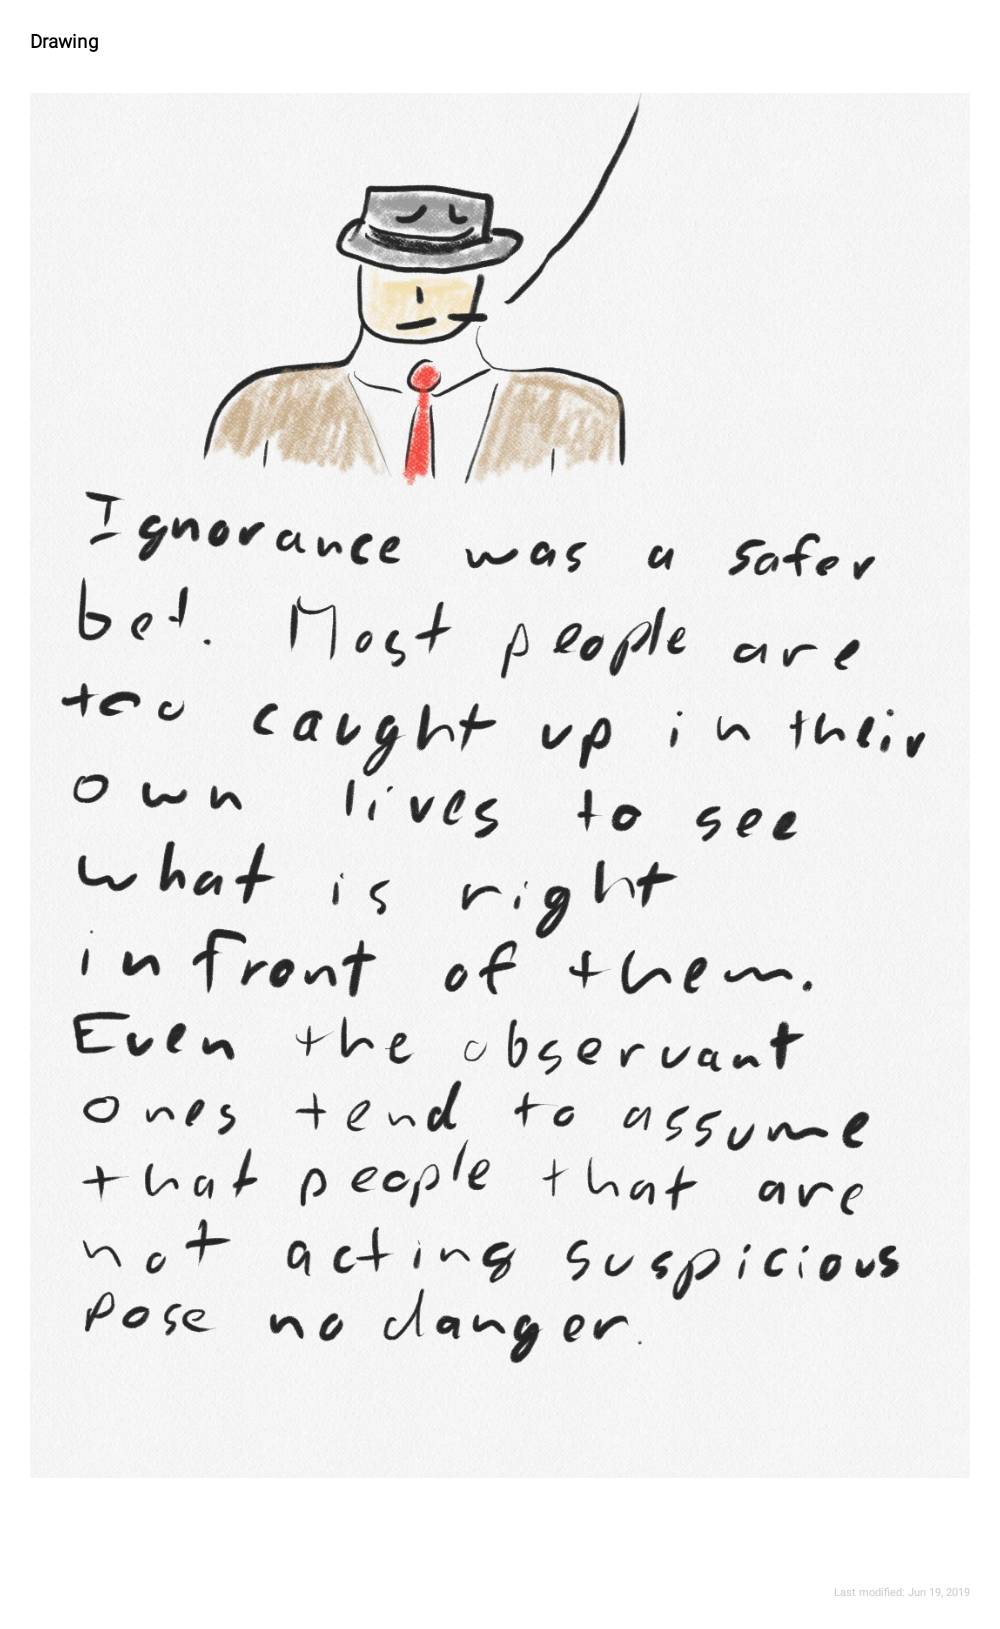 Drawing
Ignorance was a safer
bet. Most people are
too caught up in their
own lives to see
what is right
in front of them.
Even the observant
ones tend to assume
that people that are
not acting suspicious
pose no danger.
Last modified: Jun 19, 2019